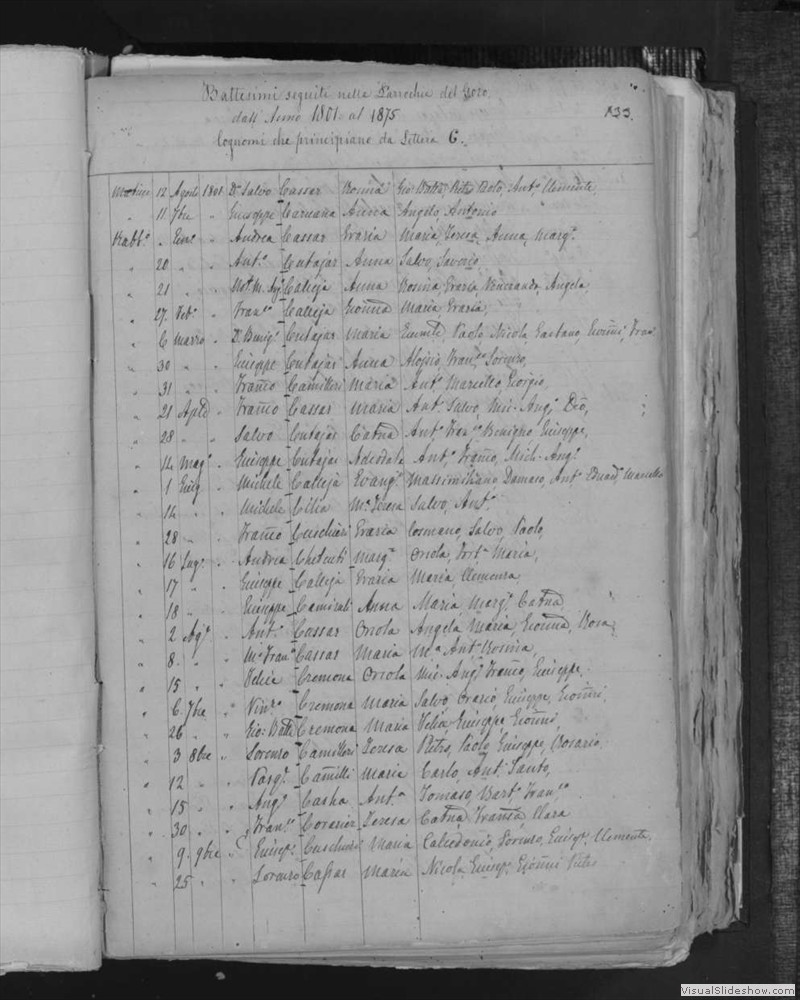 Battesimi seguiti nella Parrochia del Gozo
dall'Anno 1801 al 1875
Cognomi che principiano da Lettera C.
133
12 Agosto 1801 Dr Salvo Cassar Rosina Gio Batta, Pietro Paolo, Anto Clemente,
" 11 7bre " Giuseppe Caruana Anna Angelo, Antonio
Rabto " Genro " Andrea Cassar Grazia Maria Teresa, Anna, Margta
" 20 " " Anto Cutajar Anna Salvo, Saverio,
" 21 " " Calleja Anna Rosina Grazia Veneranda, Angela,
" 27 Febo " Franco Calleja Gionna Maria, Grazia,
" 6 Marzo " D. Benigo Cutajar Maria Paolo, Nicola, Gaetano, Gionni, Fran
" 30 " " Giuseppe Cutajar Anna Aloisio, Franco Lorenzo,
" 31 " " Franco Camilleri Maria Anto Marcello, Giorgio,
" 21 Aple " Franco Cassar Maria Anto Salvo, Mic-Angо
" 28 " " Salvo Cutajar Catna Anto Franco Benigno Giuseppe,
" 14 Mago " Giuseppe Cutajar Adeodata Anto, Franco, Mich-Ango
" 1 Giug " Michele Calleja Evanga Massimiliano Damaso, Anto Marcello
" 14 " " Michele Cilia Ma Teresa Salvo, Anto
" 28 " " Franco Cuschieri Grazia Cosmano, Salvo, Paolo,
" 16 Lugo " Andrea Marga Orsola, Maria,
" 17 " " Giuseppe Calleja Grazia Maria Clemenza
" 18 " " Giuseppe Anna Maria Marga Catna
" 2 Ago " Anto Cassar Orsola Angela Maria, Gionna, Rosa,
" 8 " " Cassar Maria Ma Anta Rosina,
" 15 " " Velia Cremona Orsola Mic-Ango Franco, Giuseppe,
" 6 7bre " Vinzo Cremona Maria Salvo Orazio, Giuseppe, Gionni,
" 26 " " Gio: Batta Cremona Maria Velia Giuseppe, Gionni,
" 3 8bre " Lorenzo Camilleri Teresa Pietro, Paolo Giuseppe, Rosario
" 12 " " Pasqe Camilli Maria Carlo, Anto Santo,
" 15 " " Ango Casha Anta Tomaso, Barto Franco
" 30 " " Franco Teresa Catna Fransa, Clara
" 9 9bre " Giusepe Cuschieri Maria Calcedonio, Lorenzo, Giusepe Clemente.
" 25 " " Lorenzo Cassar Maria Nicola, Giusepe Gionni Pietro
VisualSlideshow.com